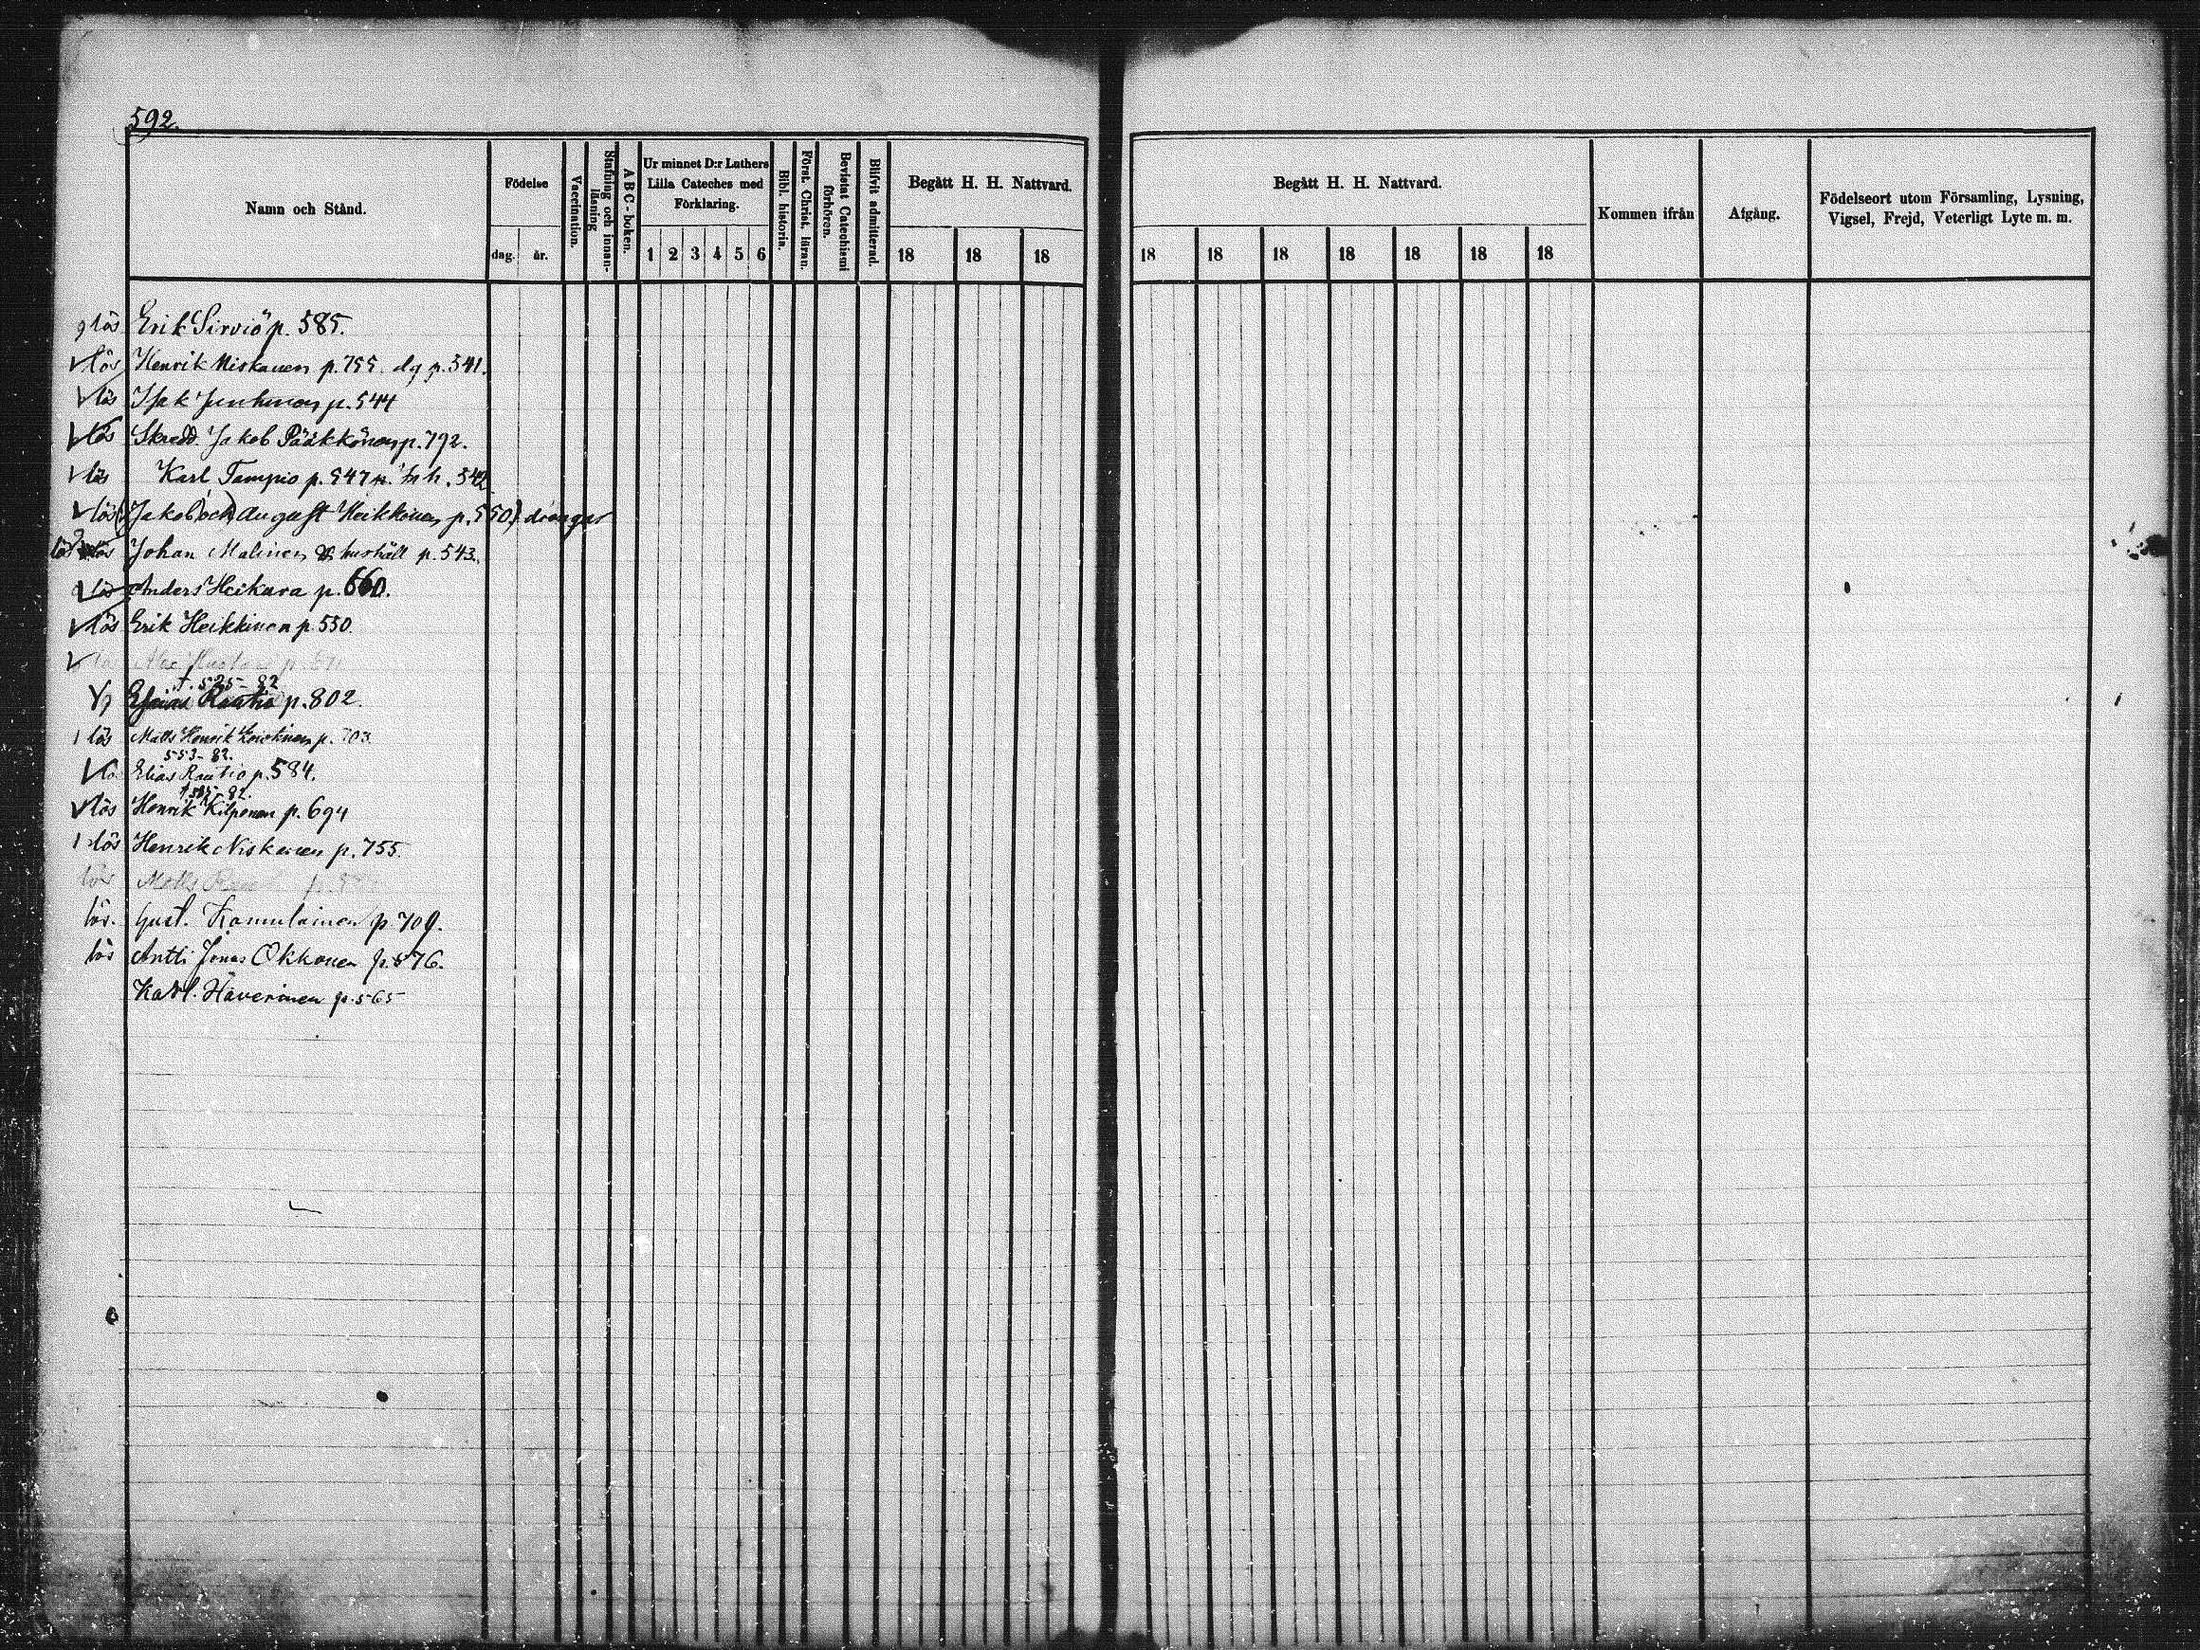 592.
Namn och Stånd.
Födelse
dag. år.
Vaccination.
Stafning och innanläsning
A B C - boken.
Ur minnet D:r Luthers
Lilla Cateches med
Förklaring.
1 2 3 4 5 6
Bibl. historia.
Först. Christ. läran.
Bevistat Catechismi förhören.
Blifvit admitterad.
Begått H. H. Nattvard.
18 18 18
Begått H. H. Nattvard.
18 18 18 18 18 18 18
Kommen ifrån
Afgång.
Födelseort utom Församling, Lysning,
Vigsel, Frejd, Veterligt Lyte m. m.
lös Erik Sirviö p. 585.
lös Henrik Niskanen p. 755. dg p. 541.
lös Isak Juntunen p. 544
lös Skredd. Jakob Pääkkönen p. 792.
lös Karl Tampio p. 547 542
lös (Jakob (och) August Heikkinen p. 550) drängar
lös Johan Malinen hushåll p. 543.
lös Anders Heikura p. 660.
lös Erik Heikkinen p. 550.
lös p.
f. 525-82
Esaias Rautio p. 802.
lös Matts Henrik p. 703
553-82.
Elias Rautio p. 584.
82.
lös Henrik Kilponen p. 694
lös Henrik Niskanen p. 755.
lös Matts p.
lös. Gust. Kamulainen p 709.
lös Antti Jonas Okkonen p. 576.
Karl. Häverinen p. 565